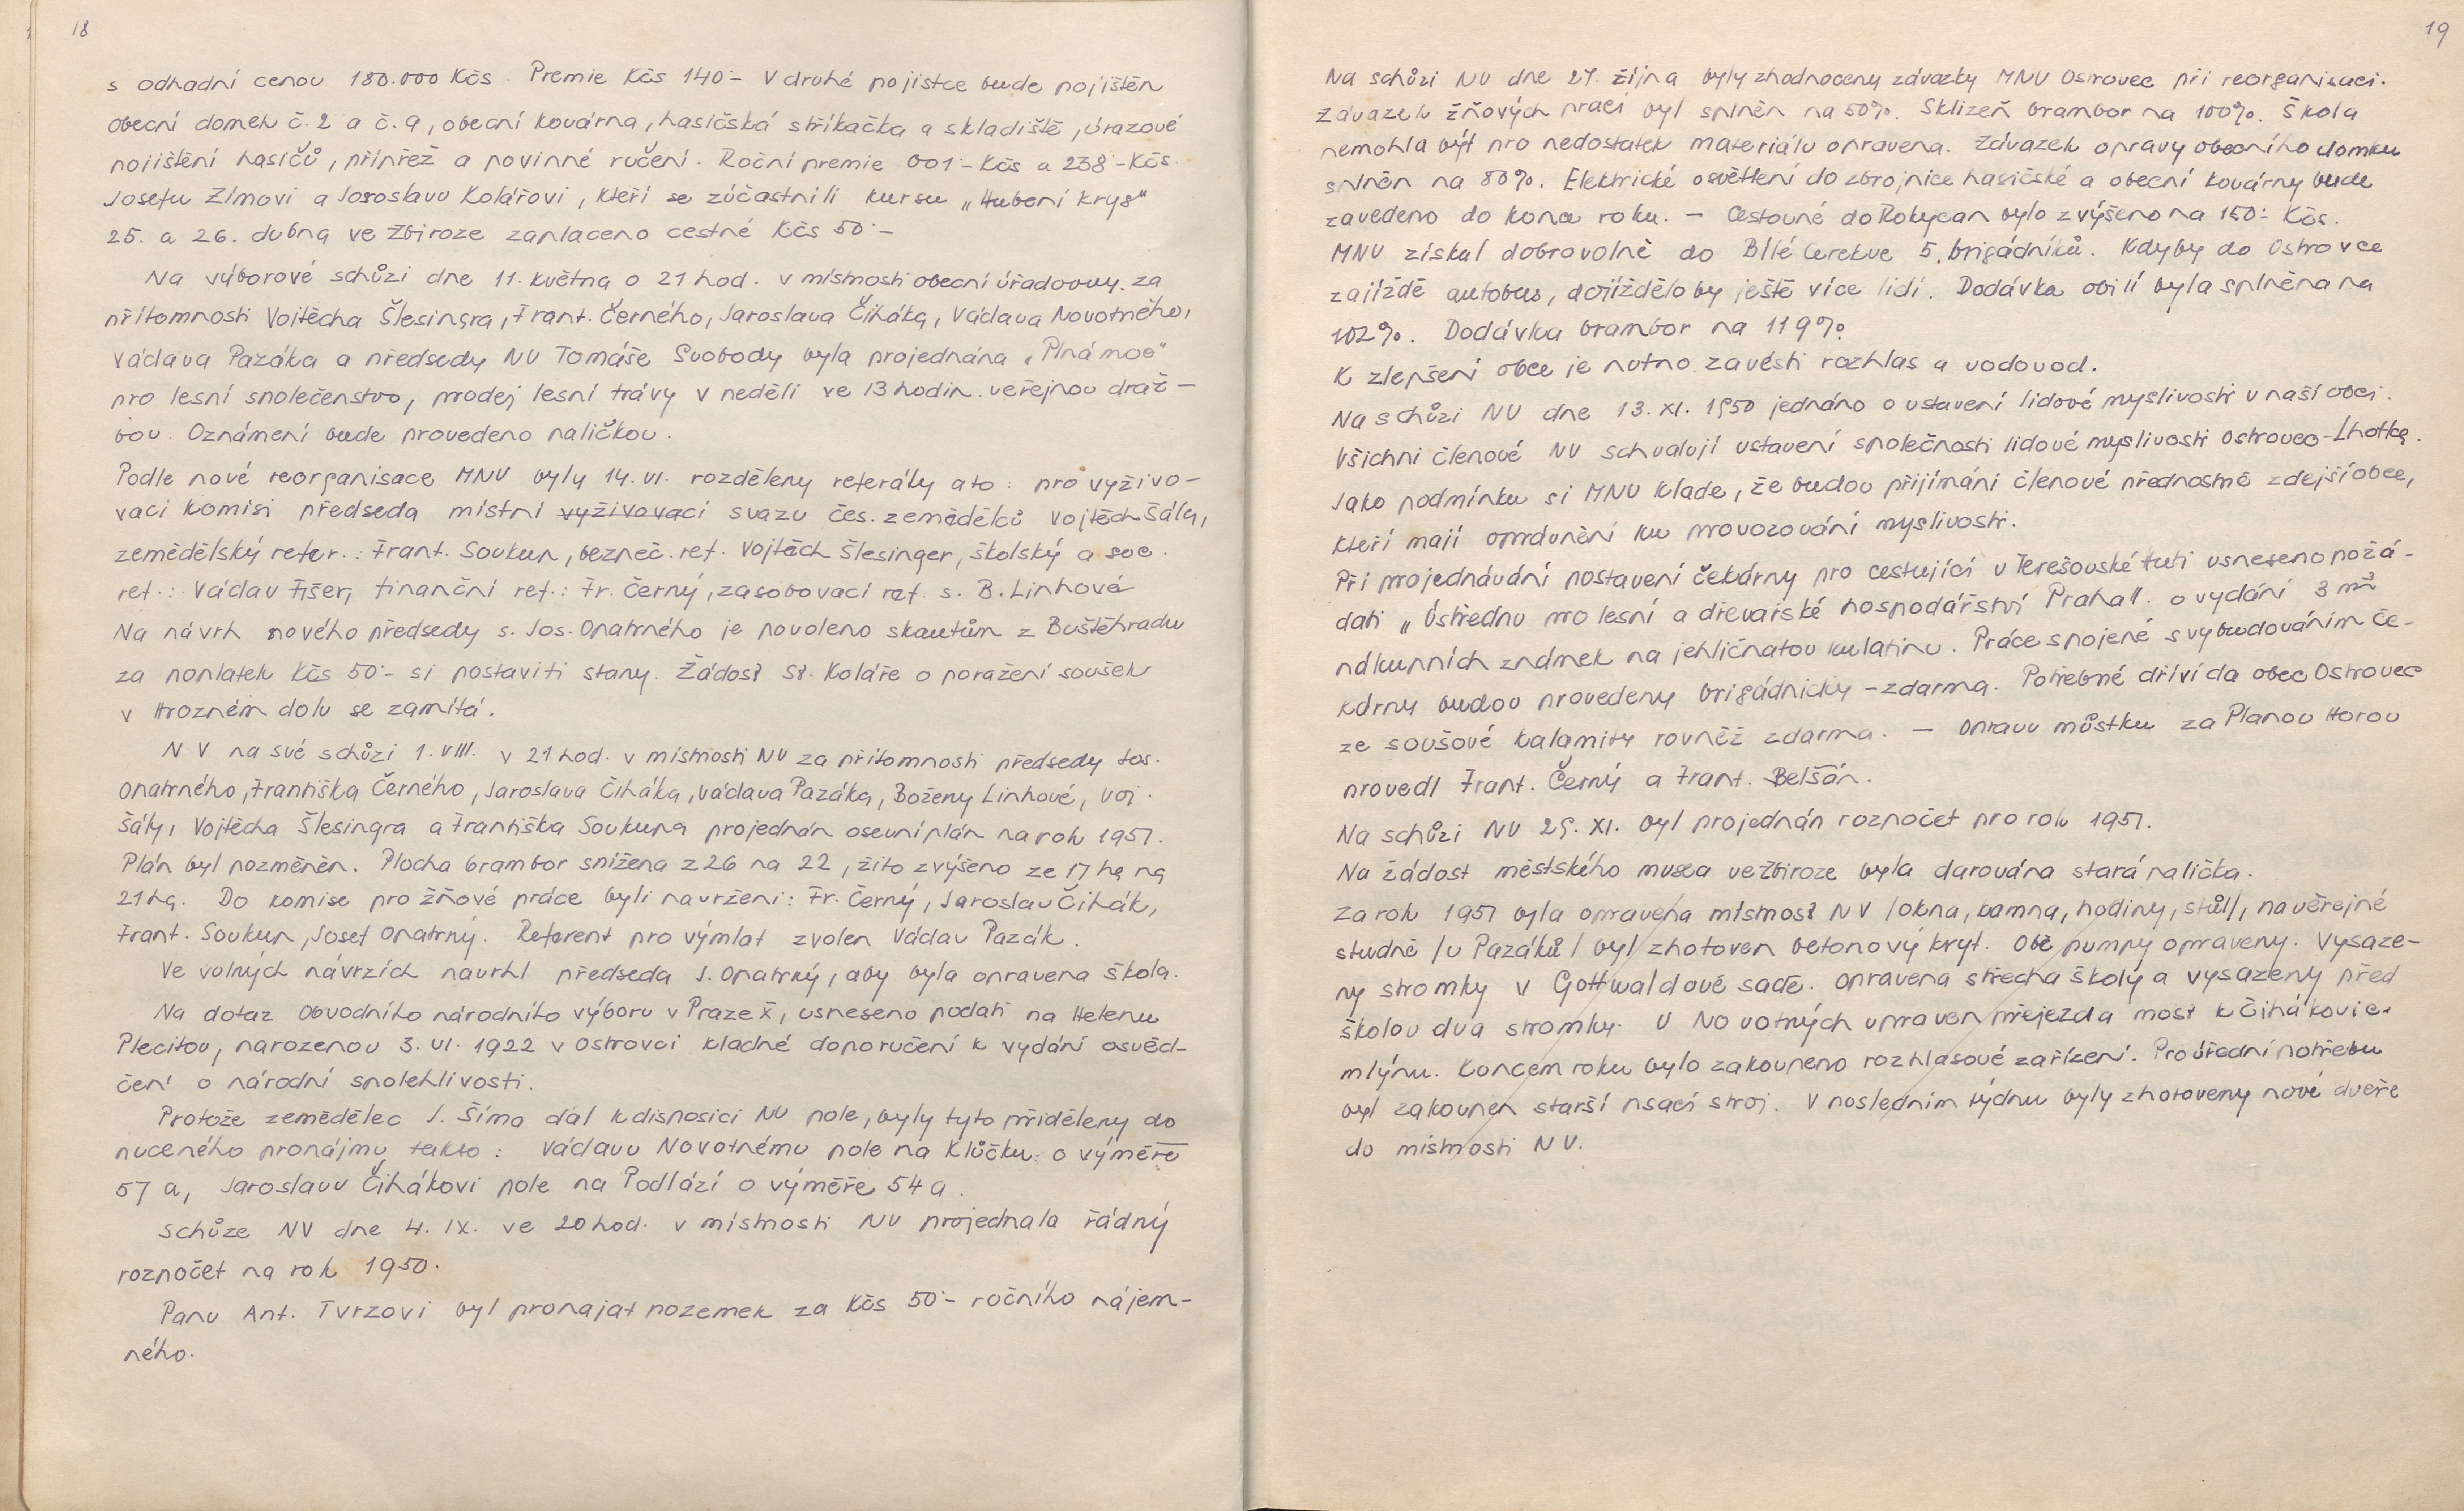 18
s odhadní cenou 180.000 Kčs. Premie Kčs 140·- V druhé pojistce bude pojištěn
obecní domek č. 2 a č. 9, obecní kovárna, hasičská stříkačka a skladiště, úrazové
pojištění hasičů, přípřež a povinné ručení. Roční premie 001·- Kčs a 238·- Kčs.
Josefu Zímovi a Jaroslavu Kolářovi, kteří se zúčastnili kursu „Hubení krys"
25. a 26. dubna ve Zbiroze zaplaceno cestné Kčs 50·-
Na výborové schůzi dne 11. května o 21 hod. v místnosti obecní úřadovny. za
přítomnosti Vojtěcha Šlesingra, Frant. Černého, Jaroslava Čiháka, Václava Novotného,
Václava Pazáka a předsedy NV Tomáše Svobody byla projednána „Plná moc"
pro lesní společenstvo, prodej lesní trávy v neděli ve 13 hodin. veřejnou draž-
bou. Oznámení bude provedeno paličkou.
Podle nové reorganisace MNV byly 14. VI. rozděleny referáty a to: pro vyživo-
vací komisi předseda místní vyživovací svazu čes. zemědělců Vojtěch Šála,
zemědělský refer.: Frant. Soukup, bezpeč. ref. Vojtěch Šlesinger, školský a soc.
ref.: Václav Fišer, finanční ref.: Fr. Černý, zasobovací ref. s. B. Linhová
Na návrh nového předsedy s. Jos. Opatrného je povoleno skautům z Buštěhradu
za poplatek Kčs 50·- si postaviti stany. Žádost St. Koláře o poražení soušek
v Hrozném dolu se zamítá.
NV na své schůzi 1. VIII. v 21 hod. v místnosti NV za přítomnosti předsedy Jos.
Opatrného, Františka Černého, Jaroslava Čiháka, Václava Pazáka, Boženy Linhové, Voj.
Šály, Vojtěcha Šlesingra a Františka Soukupa projednán osevní plán na rok 1951.
Plán byl pozměněn. Plocha brambor snížena z 26 na 22, žito zvýšeno ze 17 ha na
21 ha. Do komise pro žňové práce byli navrženi: Fr. Černý, Jaroslav Čihák,
Frant. Soukup, Josef Opatrný. Referent pro výmlat zvolen Václav Pazák.
Ve volných návrzích navrhl předseda J. Opatrný, aby byla opravena škola.
Na dotaz Obvodního národního výboru v Praze X, usneseno podati na Helenu
Plecitou, narozenou 3. VI. 1922 v Ostrovci kladné doporučení k vydání osvěd-
čení o národní spolehlivosti.
Protože zemědělec J. Šíma dal k disposici NV pole, byly tyto přiděleny do
nuceného pronájmu takto: Václavu Novotnému pole na Klůčku o výměře
57 a, Jaroslavu Čihákovi pole na Podlází o výměře 54 a.
Schůze NV dne 4. IX. ve 20 hod. v místnosti NV projednala řádný
rozpočet na rok 1950.
Panu Ant. Tvrzovi byl pronajat pozemek za Kčs 50·- ročního nájem-
ného.
19
Na schůzi NV dne 27. října byly zhodnoceny závazky MNV Ostrovec při reorganisaci.
Závazek žňových prací byl splněn na 50%. Sklizeň brambor na 100%. Škola
nemohla být pro nedostatek materiálu opravena. Závazek opravy obecního domku
splněn na 80%. Elektrické osvětlení do zbrojnice hasičské a obecní kovárny bude
zavedeno do konce roku. - Cestovné do Rokycan bylo zvýšeno na 150·- Kčs.
MNV získal dobrovolně do Bílé Cerekve 5. brigádníků. Kdyby do Ostrovce
zajíždě autobus, dojíždělo by ještě více lidí. Dodávka obilí byla splněna na
102%. Dodávka brambor na 119%.
K zlepšení obce je nutno zavésti rozhlas a vodovod.
Na schůzi NV dne 13. XI. 1950 jednáno o ustavení lidové myslivosti v naší obci.
Všichni členové NV schvalují ustavení společnosti lidové myslivosti Ostrovec-Lhotka.
Jako podmínku si MNV klade, že budou přijímáni členové přednostně zdejší obce,
kteří mají oprávnění ku provozování myslivosti.
Při projednávání postavení čekárny pro cestující u Terešovské huti usneseno požá-
dati „Ústřednu pro lesní a dřevařské hospodářství Praha II. o vydání 3 m²
nákupních známek na jehličnatou kulatinu. Práce spojené s vybudováním če-
kárny budou provedeny brigádnicky - zdarma. Potřebné dříví dá obec Ostrovec
ze soušové kalamity rovněž zdarma. - Opravu můstku za Planou Horou
provedl Frant. Černý a Frant. Belšán.
Na schůzi NV 29. XI. byl projednán rozpočet pro rok 1951.
Na žádost městského musea ve Zbiroze byla darována stará palička.
Za rok 1951 byla opravena místnost NV /okna, kamna, hodiny, stůl/, na veřejné
studně /u Pazáků/ byl zhotoven betonový kryt. Obě pumpy opraveny. Vysaze-
ny stromky v Gottwaldově sadě. Opravena střecha školy a vysazeny před
školou dva stromky. U Novotných upraven přejezd a most k Čihákovic.
mlýnu. Koncem roku bylo zakoupeno rozhlasové zařízení. Pro úřední potřebu
byl zakoupen starší psací stroj. V posledním týdnu byly zhotoveny nové dveře
do místnosti NV.